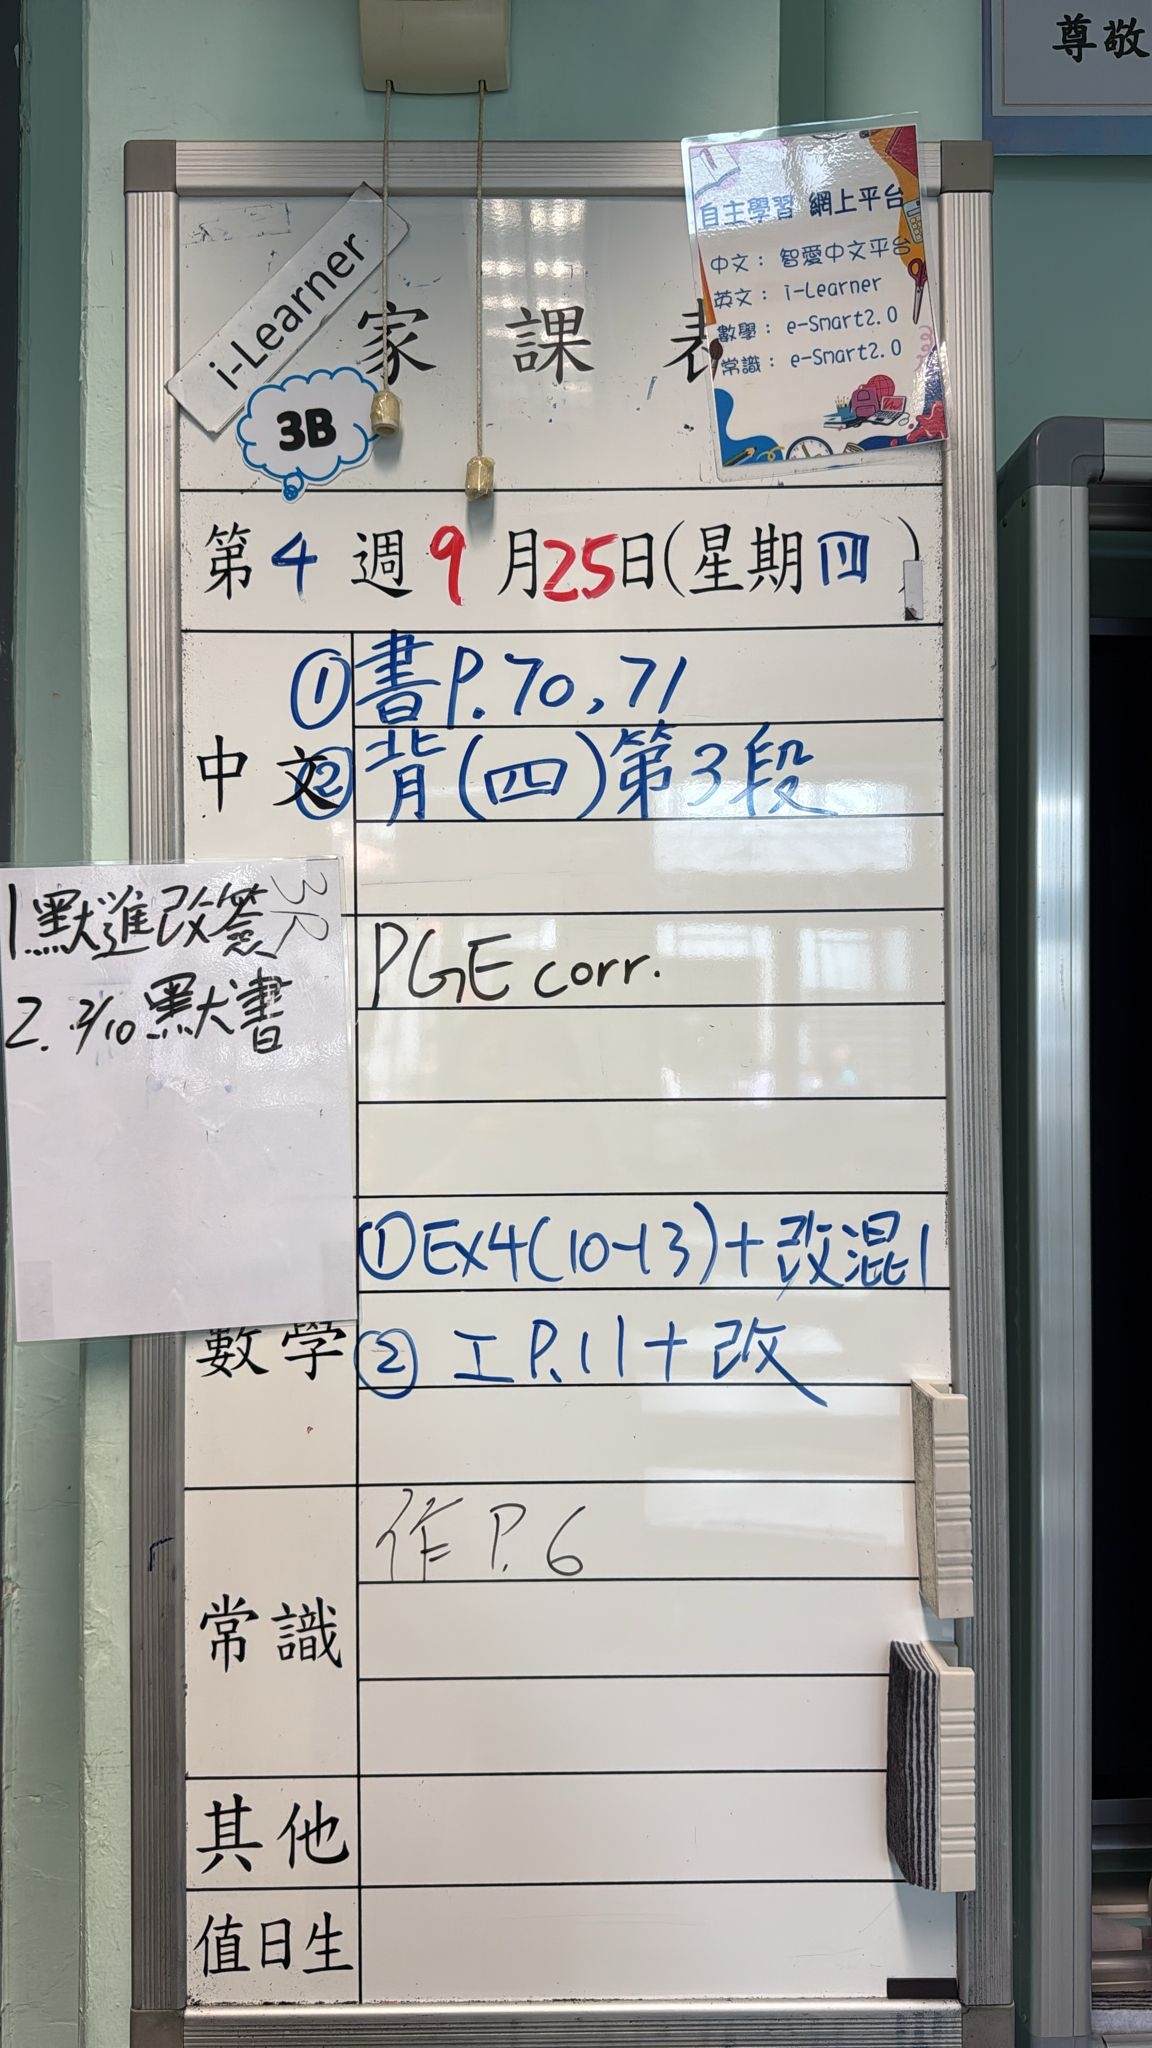 尊敬
自主學習 網上平台
中文： 智愛中文平台
英文： i-Learner
數學： e-Smart2.0
常識： e-Smart2.0
i-Learner
家課表
3B
第4週9月25日(星期四)
中文
①書P.70,71
②背(四)第3段
3R
1.默進改簽
2. 2/10默書
PGE corr.
數學
①Ex4(10-13)+改混1
②工P.11+改
常識
作P.6
其他
值日生